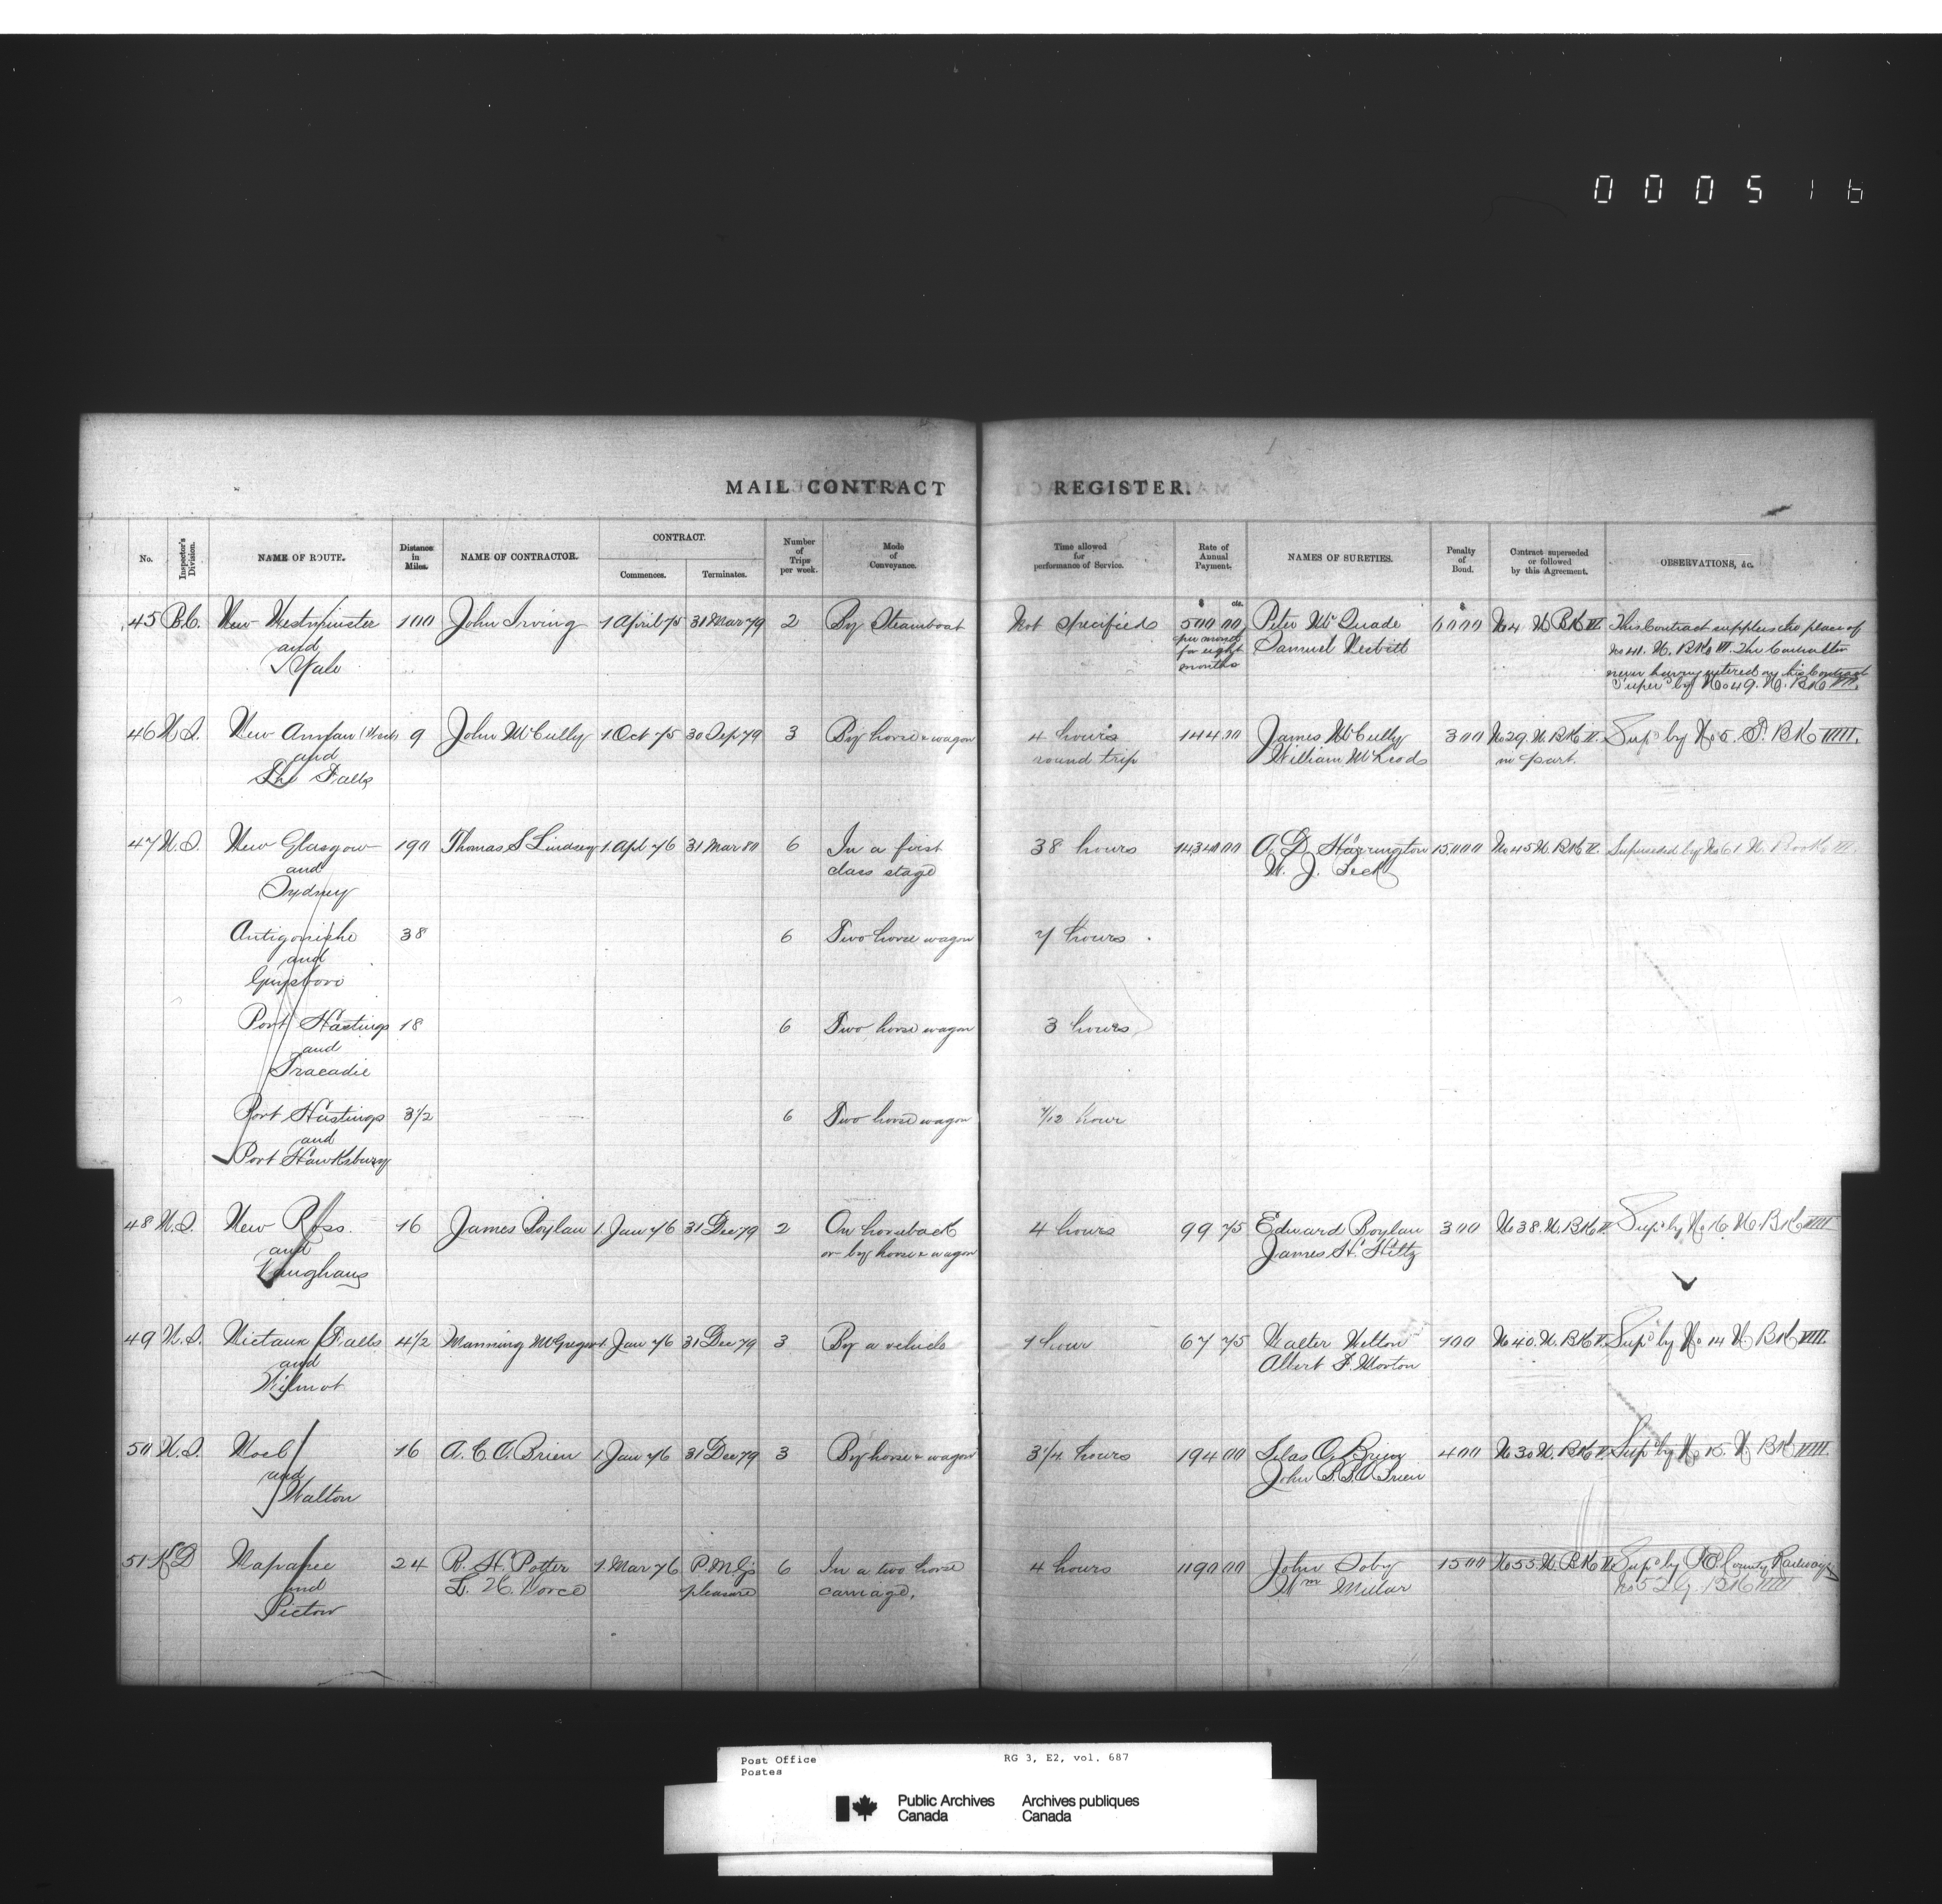 000516
MAIL CONTRACT REGISTER.
No. Inspector's Division. NAME OF ROUTE. Distance in Miles. NAME OF CONTRACTOR. CONTRACT. Commences. Terminates. Number of Trips per week. Mode of Conveyance. Time allowed for performance of Service. Rate of Annual Payment. NAMES OF SURETIES. Penalty of Bond. Contract superseded or followed by this Agreement. OBSERVATIONS, &c.
$ cts. $
45 B.C. New Westminster 100 John Irving 1 April 75 31 Mar 79 2 By Steamboat Not specified 500 00 Peter McQuade 1000 No 4 N BK VI. This Contract supplies the place of
and per month Samuel Nesbitt No 41. N. BK VI. The Contractor
Yale for eight never having entered on his Contract
months Super'd by No 49. N. BK VII.
46 N.S. New Annan 9 John McCully 1 Oct 75 30 Sep 79 3 By horse & wagon 4 hours 144 00 James McCully 300 No 29. N. BK V. Sup'd by No 5. T. BK VIII.
and round trip William McLeod in part.
The Falls
47 N.S. New Glasgow 190 Thomas S Lindsay 1 Apl 76 31 Mar 80 6 In a first 38 hours 14340 00 A. D. Harrington 15000 No 45 N. BK V. Superseded by No 61 N. Book VII.
and class stage W. J. Beck
Sydney
Antigonishe 38 6 Two horse wagon 7 hours
and
Guysboro
Port Hastings 18 6 Two horse wagon 3 hours
and
Tracadie
Port Hastings 3 1/2 6 Two horse wagon 7/12 hour
and
Port Hawksbury
48 N.S. New Ross 16 James Boylan 1 Jan 76 31 Dec 79 2 On horseback 4 hours 99 75 Edward Boylan 300 No 38. N. BK V. Sup'd by No 16 N. BK VIII
and or by horse & wagon James H. Hiltz
Vaughans
49 N.S. Nictaux Falls 4 1/2 Manning McGregor 1 Jan 76 31 Dec 79 3 By a vehicle 1 hour 67 75 Walter Wilton 100 No 40. N. BK V. Sup'd by No 14 N BK VIII.
and Albert F. Morton
Wilmot
50 N.S. Noel 16 A. C. O'Brien 1 Jan 76 31 Dec 79 3 By horse & wagon 3 1/4 hours 194 00 Silas O'Brien 400 No 30 N. BK V. Sup'd by No 15. N BK VIII.
and John B. O'Brien
Walton
51 K D Napanee 24 R. H. Potter 1 Mar 76 P.M.G's 6 In a two horse 4 hours 1190 00 John Soby 1500 No 55 N. BK Sup'd by P. E. County Railway
and L. H. Vorce pleasure carriage. Wm Millar No 52 G. BK VIII
Picton
Post Office RG 3, E2, vol. 687
Postes
Public Archives Archives publiques
Canada Canada